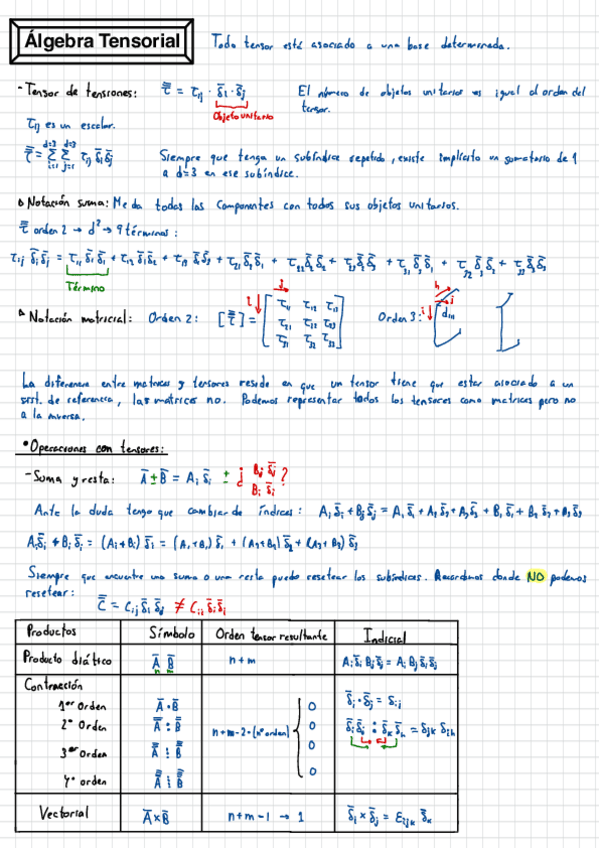 Álgebra Tensorial
Todo tensor está asociado a una base determinada.
- Tensor de tensiones: τ̿ = τij · δ̄i · δ̄j
El número de objetos unitarios es igual al orden del
tensor.
Objeto unitario
τij es un escalar.
τ̿ = Σ Σ τij δ̄i δ̄j
d=3 d=3
i=1 j=1
Siempre que tenga un subíndice repetido, existe implícito un sumatorio de 1
a d=3 en ese subíndice.
Notación suma: Me da todas las componentes con todos sus objetos unitarios.
τ̿ orden 2 → d² → 9 términos:
τij δ̄i δ̄j = τ11 δ̄1 δ̄1 + τ12 δ̄1 δ̄2 + τ13 δ̄1 δ̄3 + τ21 δ̄2 δ̄1 + τ22 δ̄2 δ̄2 + τ23 δ̄2 δ̄3 + τ31 δ̄3 δ̄1 + τ32 δ̄3 δ̄2 + τ33 δ̄3 δ̄3
Término
Notación matricial: Orden 2: [τ̿] =
i j
τ11 τ12 τ13
τ21 τ22 τ23
τ31 τ32 τ33
Orden 3:
i j
La diferencia entre matrices y tensores reside en que un tensor tiene que estar asociado a un
sist. de referencia, las matrices no. Podemos representar todos los tensores como matrices pero no
a la inversa.
• Operaciones con tensores:
- Suma y resta: Ā ± B̄ = Ai δ̄i ± ¿ Bj δ̄j ?
Bi δ̄i
Ante la duda tengo que cambiar de índices: Ai δ̄i + Bj δ̄j = A1 δ̄1 + A2 δ̄2 + A3 δ̄3 + B1 δ̄1 + B2 δ̄2 + B3 δ̄3
Ai δ̄i + Bi δ̄i = (Ai + Bi) δ̄i = (A1 + B1) δ̄1 + (A2 + B2) δ̄2 + (A3 + B3) δ̄3
Siempre que encuentre una suma o una resta puedo resetear los subíndices. Recordamos donde NO podemos
resetear:
C̿ = Cij δ̄i δ̄j ≠ Cii δ̄i δ̄i
Productos Símbolo Orden tensor resultante Indicial
Producto diático Ā B̄ n+m Ai δ̄i Bj δ̄j = Ai Bj δ̄i δ̄j
n m
Contracción
1er Orden Ā · B̄ 0 δ̄i · δ̄j = δij
2º Orden A̿ : B̿ n+m-2·(nºorden) 0 δ̄i δ̄j : δ̄k δ̄h = δjk δih
3er Orden 0
4º orden 0
Vectorial Ā x B̄ n+m-1 → 1 δ̄i x δ̄j = εijk δ̄k